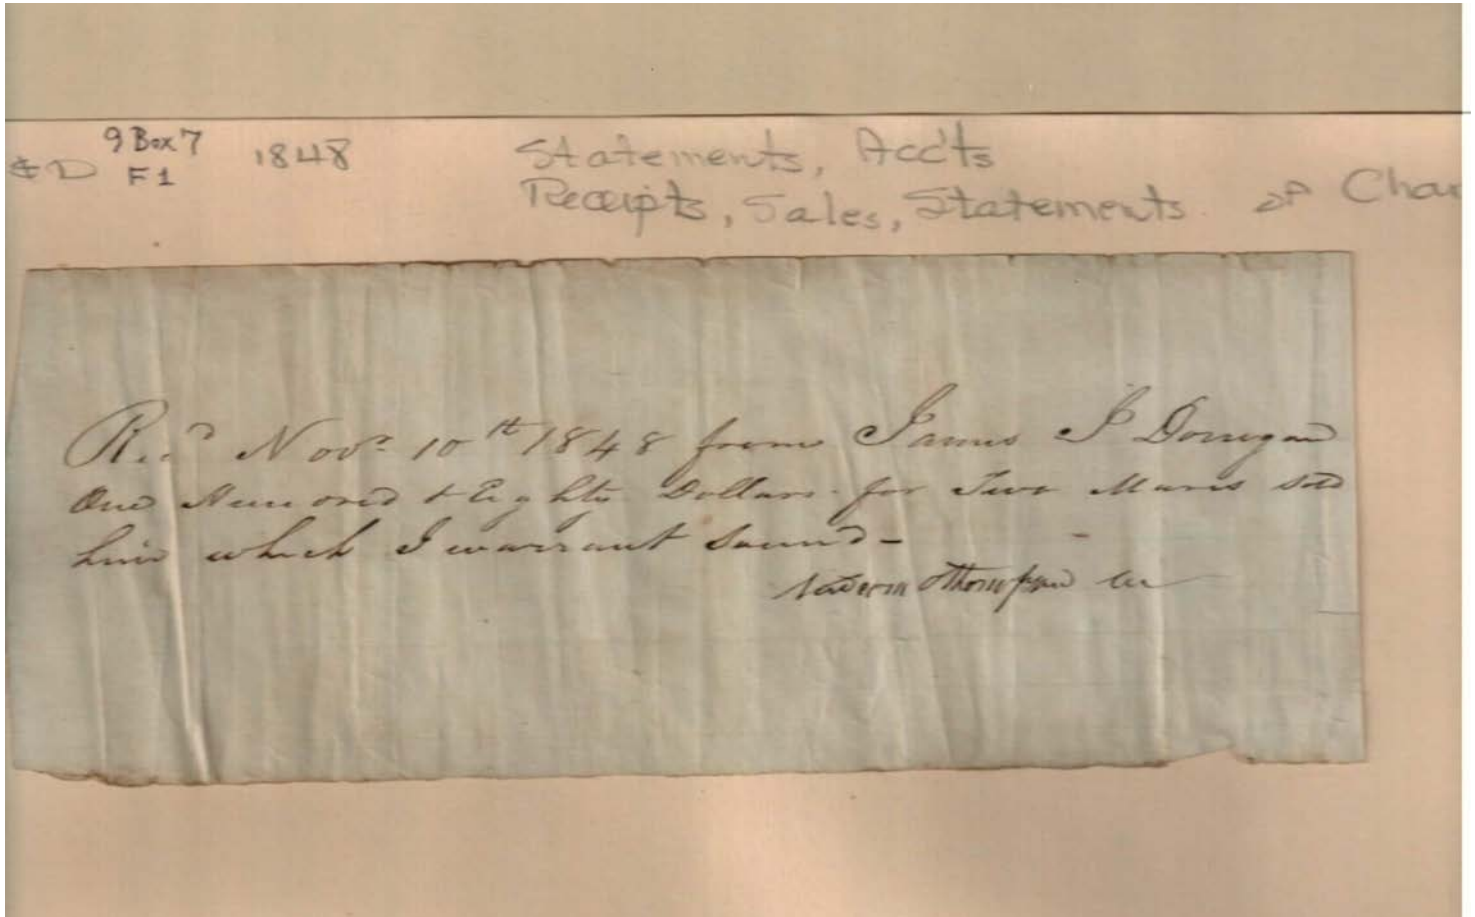 9 Box 7
F1
& D 1848
Statements, Acc'ts
Receipts, Sales, Statements
Recd Novr 10th 1848 from James J Donegan
One Hundred & Eighty Dollars for Two Mares sold
him which I warrant sound -
Thompson